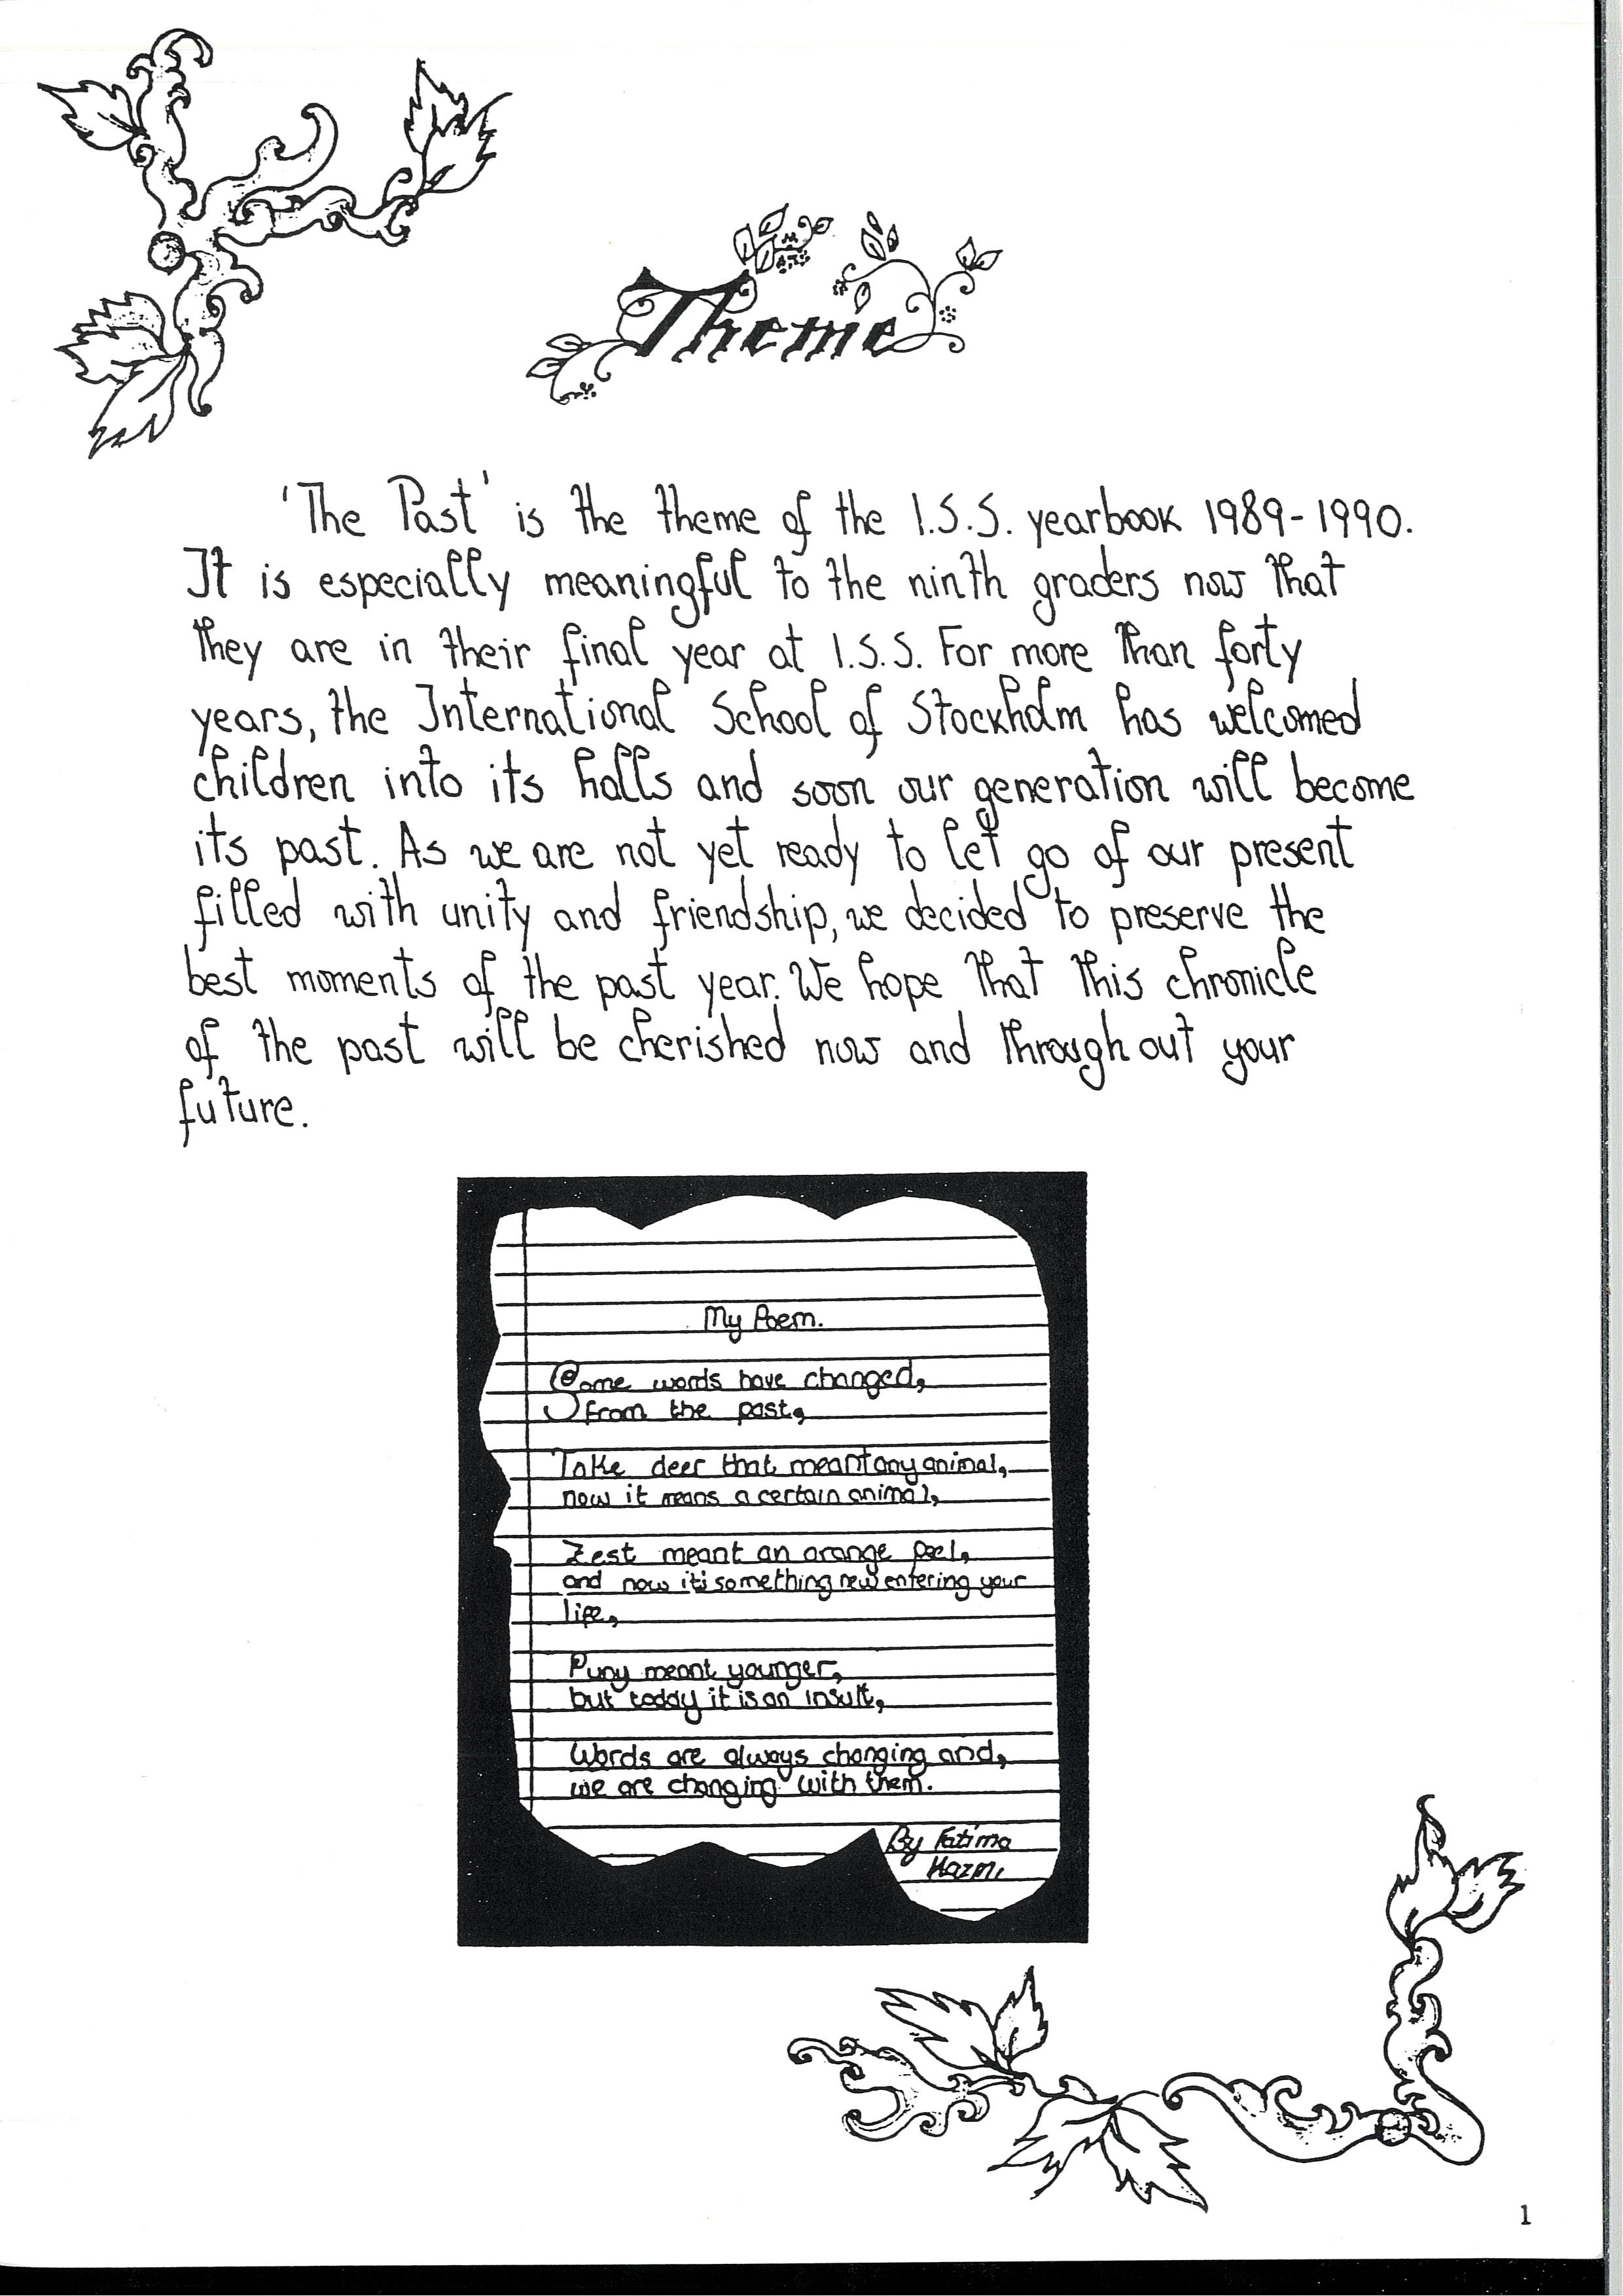 Theme
'The Past' is the theme of the I.S.S. yearbook 1989-1990.
It is especially meaningful to the ninth graders now that
they are in their final year at I.S.S. For more than forty
years, the International School of Stockholm has welcomed
children into its halls and soon our generation will become
its past. As we are not yet ready to let go of our present
filled with unity and friendship, we decided to preserve the
best moments of the past year. We hope that this chronicle
of the past will be cherished now and throughout your
future.
My Poem.
Some words have changed,
from the past,
Take deer that meant any animal,
now it means a certain animal,
Zest meant an orange peel,
and now it's something new entering your
life,
Puny meant younger,
but today it is an insult,
Words are always changing and,
we are changing with them.
By Fatima
Hazmi
1